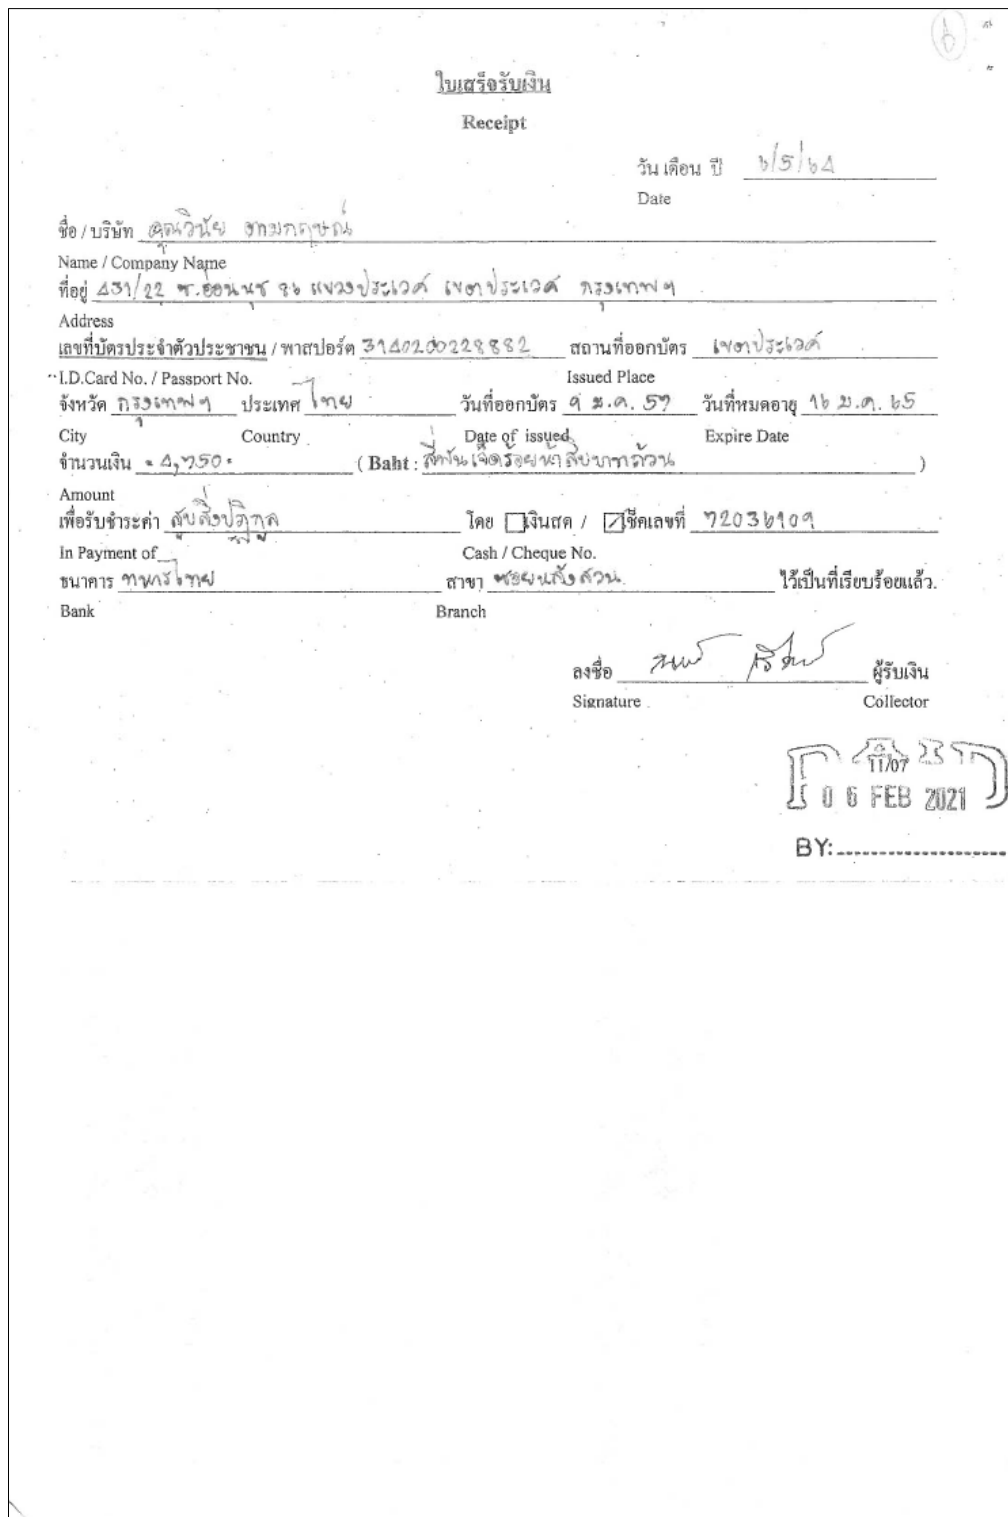 ๖
ใบเสร็จรับเงิน
Receipt
วัน เดือน ปี ๖/5/๖4
Date
ชื่อ / บริษัท คุณวินัย งามกฤษณ์
Name / Company Name
ที่อยู่ 431/22 ซ.อ่อนนุช 86 แขวงประเวศ เขตประเวศ กรุงเทพฯ
Address
เลขที่บัตรประจำตัวประชาชน / พาสปอร์ต 3140200228882 สถานที่ออกบัตร เขตประเวศ
I.D.Card No. / Passport No. Issued Place
จังหวัด กรุงเทพฯ ประเทศ ไทย วันที่ออกบัตร 9 ม.ค. 57 วันที่หมดอายุ 16 ม.ค. 65
City Country Date of issued Expire Date
จำนวนเงิน = 4,750 = ( Baht : สี่พันเจ็ดร้อยห้าสิบบาทถ้วน )
Amount
เพื่อรับชำระค่า สูบสิ่งปฏิกูล โดย เงินสด / เช็คเลขที่ 72036109
In Payment of Cash / Cheque No.
ธนาคาร ทหารไทย สาขา ซอยหลังสวน ไว้เป็นที่เรียบร้อยแล้ว.
Bank Branch
ลงชื่อ ผู้รับเงิน
Signature Collector
PAID
11/07
06 FEB 2021
BY: